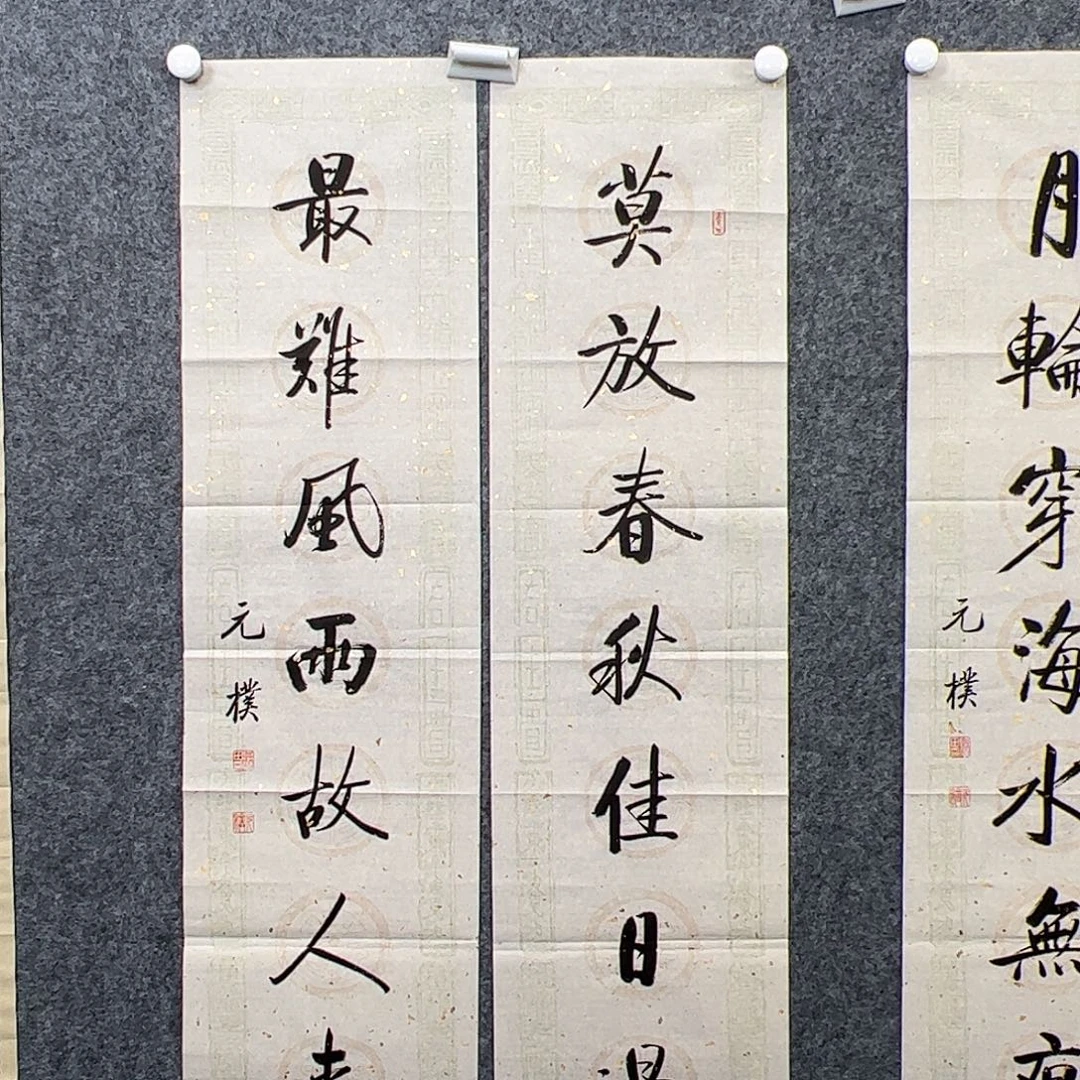 月輪穿海水無
元樸
莫放春秋佳日
最難風雨故人
元樸